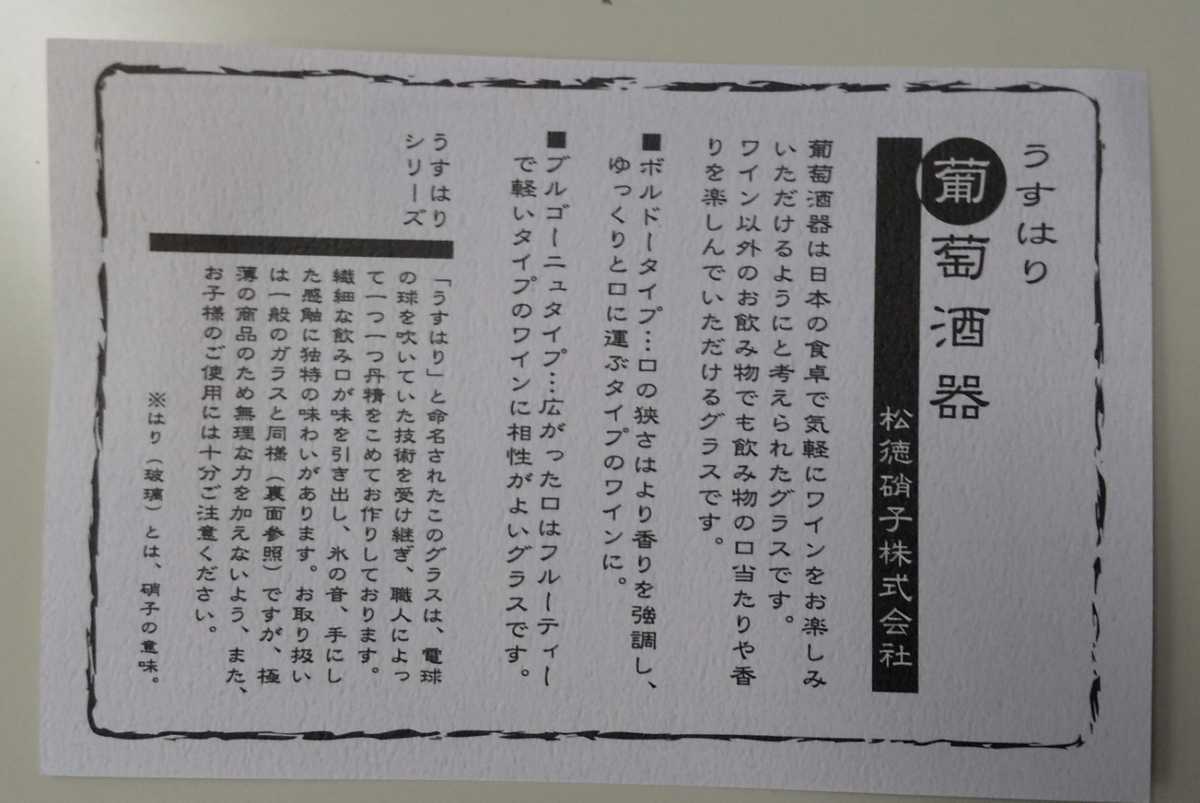 うすはり
葡萄酒器
松徳硝子株式会社
葡萄酒器は日本の食卓で気軽にワインをお楽しみ
いただけるようにと考えられたグラスです。
ワイン以外のお飲み物でも飲み物の口当たりや香
りを楽しんでいただけるグラスです。
■ボルドータイプ…口の狭さはより香りを強調し、
ゆっくりと口に運ぶタイプのワインに。
■ブルゴーニュタイプ…広がった口はフルーティー
で軽いタイプのワインに相性がよいグラスです。
うすはり
シリーズ
「うすはり」と命名されたこのグラスは、電球
の球を吹いていた技術を受け継ぎ、職人によっ
て一つ一つ丹精をこめてお作りしております。
繊細な飲み口が味を引き出し、氷の音、手にし
た感触に独特の味わいがあります。お取り扱い
は一般のガラスと同様（裏面参照）ですが、極
薄の商品のため無理な力を加えないよう、また、
お子様のご使用には十分ご注意ください。
※はり（玻璃）とは、硝子の意味。